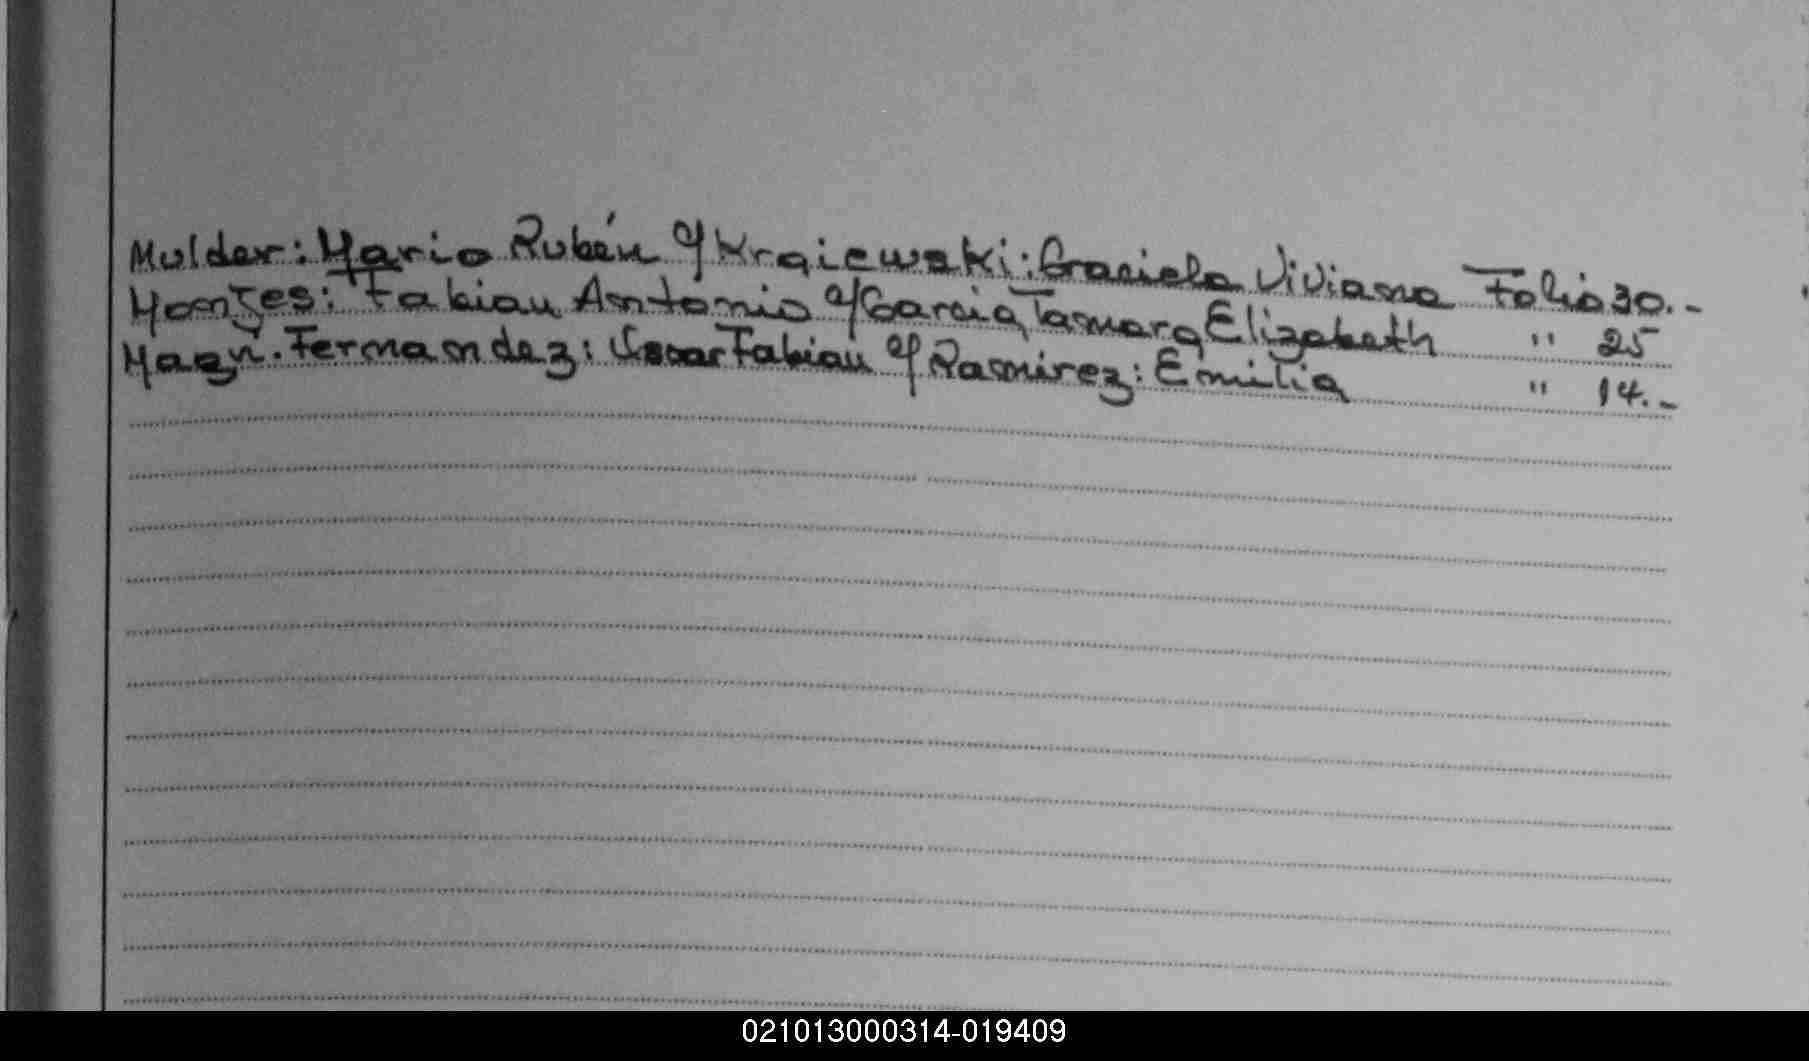 Mulder: Mario Rubén c/ Kraiewski: Graciela Viviana Folio 30.-
Montes: Fabian Antonio c/ Garcia Tamara Elizabeth " 25
Fernandez: Oscar Fabian c/ Ramirez: Emilia " 14.-
021013000314-019409